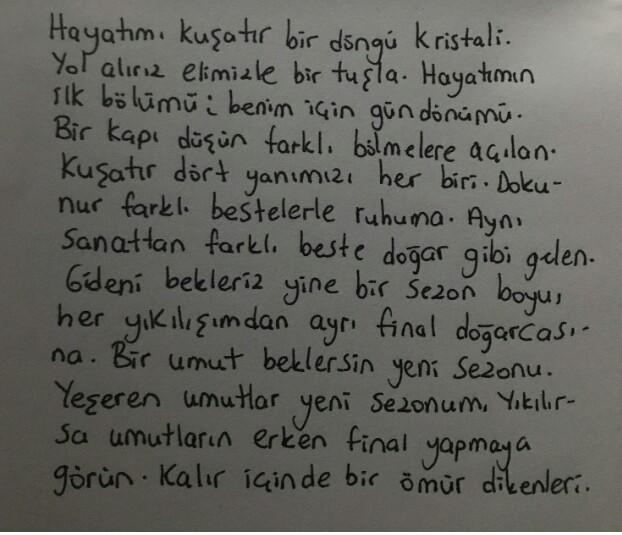 Hayatımı kuşatır bir döngü kristali.
Yol alırız elimizle bir tuşla. Hayatımın
ilk bölümü; benim için gün dönümü.
Bir kapı düşün farklı bölmelere açılan.
Kuşatır dört yanımızı her biri. Doku-
nur farklı bestelerle ruhuma. Aynı
sanattan farklı beste doğar gibi gelen.
Gideni bekleriz yine bir sezon boyu,
her yıkılışımdan ayrı final doğarcası-
na. Bir umut beklersin yeni sezonu.
Yeşeren umutlar yeni sezonum, Yıkılır-
sa umutların erken final yapmaya
görün. Kalır içinde bir ömür dikenleri.